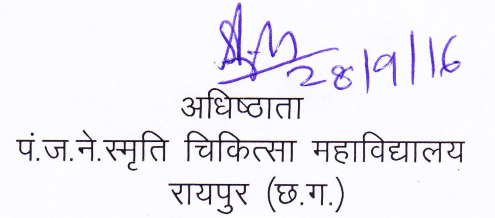 28/9/16
अधिष्ठाता
पं.ज.ने.स्मृति चिकित्सा महाविद्यालय
रायपुर (छ.ग.)